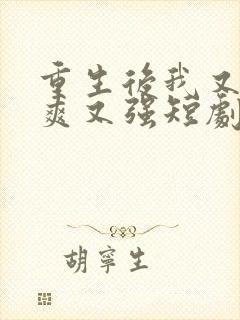 重生後我又
爽又強短劇
胡寧生